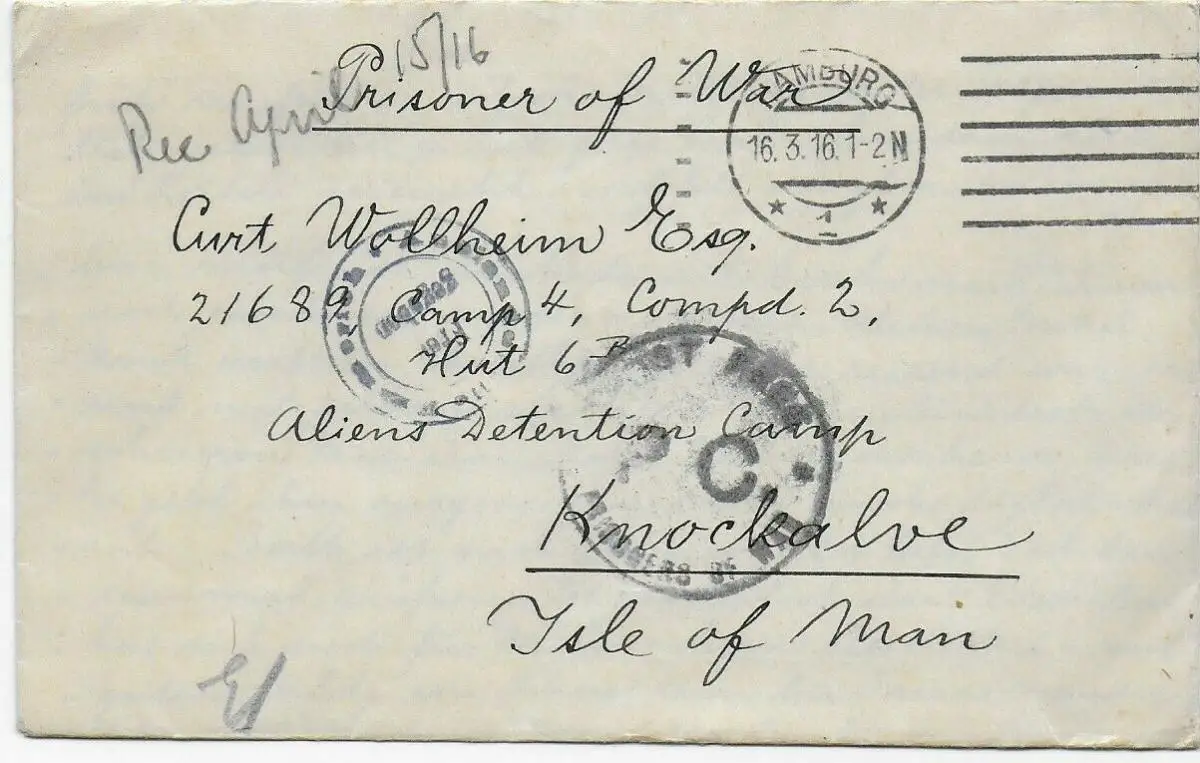 Rec April 15/16
Prisoner of War
HAMBURG
16.3.16.1-2N
★ 1 ★
Curt Wollheim Esq.
21689, Camp 4, Compd. 2,
Hut 6 B
Aliens Detention Camp
P.C.
OF WAR
Knockalve
Isle of Man